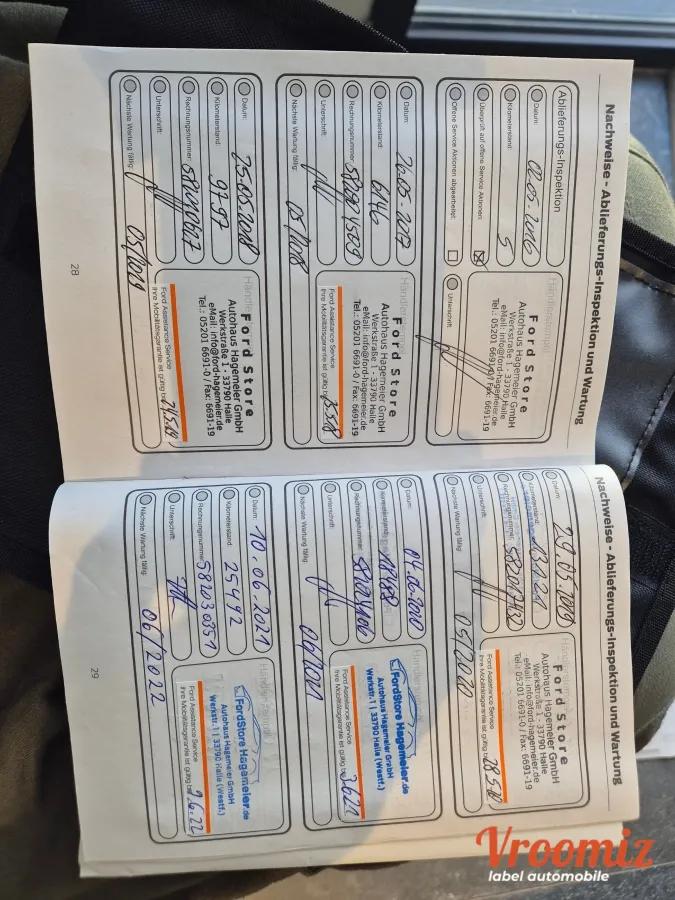 Nachweise - Ablieferungs-Inspektion und Wartung
Ablieferungs-Inspektion
Datum: 02.05.2016
Kilometerstand: 5
Überprüft auf offene Service Aktionen: ☒
Offene Service Aktionen abgearbeitet: ☐
Unterschrift:
Ford Store
Autohaus Hagemeier GmbH
Werkstraße 1 - 33790 Halle
eMail: info@ford-hagemeier.de
Tel.: 05201 6691-0 / Fax: 6691-19
Datum:
Kilometerstand: 6146
Rechnungsnummer:
Unterschrift:
Nächste Wartung fällig: 05/2018
Ford Store
Autohaus Hagemeier GmbH
Werkstraße 1 - 33790 Halle
eMail: info@ford-hagemeier.de
Tel.: 05201 6691-0 / Fax: 6691-19
Ford Assistance Service
Ihre Mobilitätsgarantie ist gültig bis
Datum: 25.05.2018
Kilometerstand:
Rechnungsnummer:
Unterschrift:
Nächste Wartung fällig: 05/2019
Ford Store
Autohaus Hagemeier GmbH
Werkstraße 1 - 33790 Halle
eMail: info@ford-hagemeier.de
Tel.: 05201 6691-0 / Fax: 6691-19
Ford Assistance Service
Ihre Mobilitätsgarantie ist gültig bis 24.5.19
28
Nachweise - Ablieferungs-Inspektion und Wartung
Datum: 29.05.2019
Kilometerstand:
Rechnungsnummer:
Unterschrift:
Nächste Wartung fällig: 05/2020
Ford Store
Autohaus Hagemeier GmbH
Werkstraße 1 - 33790 Halle
eMail: info@ford-hagemeier.de
Tel.: 05201 6691-0 / Fax: 6691-19
Ford Assistance Service
Ihre Mobilitätsgarantie ist gültig bis 28.5.20
Datum: 04.06.2020
Kilometerstand:
Rechnungsnummer:
Unterschrift:
Nächste Wartung fällig: 06/2021
FordStore Hagemeier.de
Autohaus Hagemeier GmbH
Werkstr. 1 | 33790 Halle (Westf.)
Ford Assistance Service
Ihre Mobilitätsgarantie ist gültig bis 3.6.21
Datum: 10.06.2021
Kilometerstand: 25492
Rechnungsnummer: 582030351
Unterschrift:
Nächste Wartung fällig: 06/2022
FordStore Hagemeier.de
Autohaus Hagemeier GmbH
Werkstr. 1 | 33790 Halle (Westf.)
Ford Assistance Service
Ihre Mobilitätsgarantie ist gültig bis 9.6.22
29
Vroomiz
label automobile